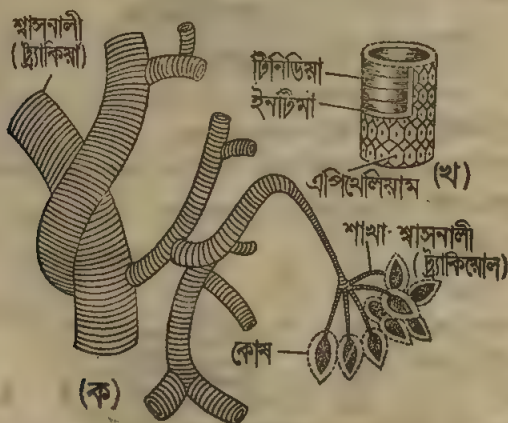 শ্বাসনালী
(ট্র্যাকিয়া)
টিনিডিয়া
ইনটিমা
এপিথেলিয়াম
(খ)
শাখা-শ্বাসনালী
(ট্র্যাকিয়োল)
কোষ
(ক)